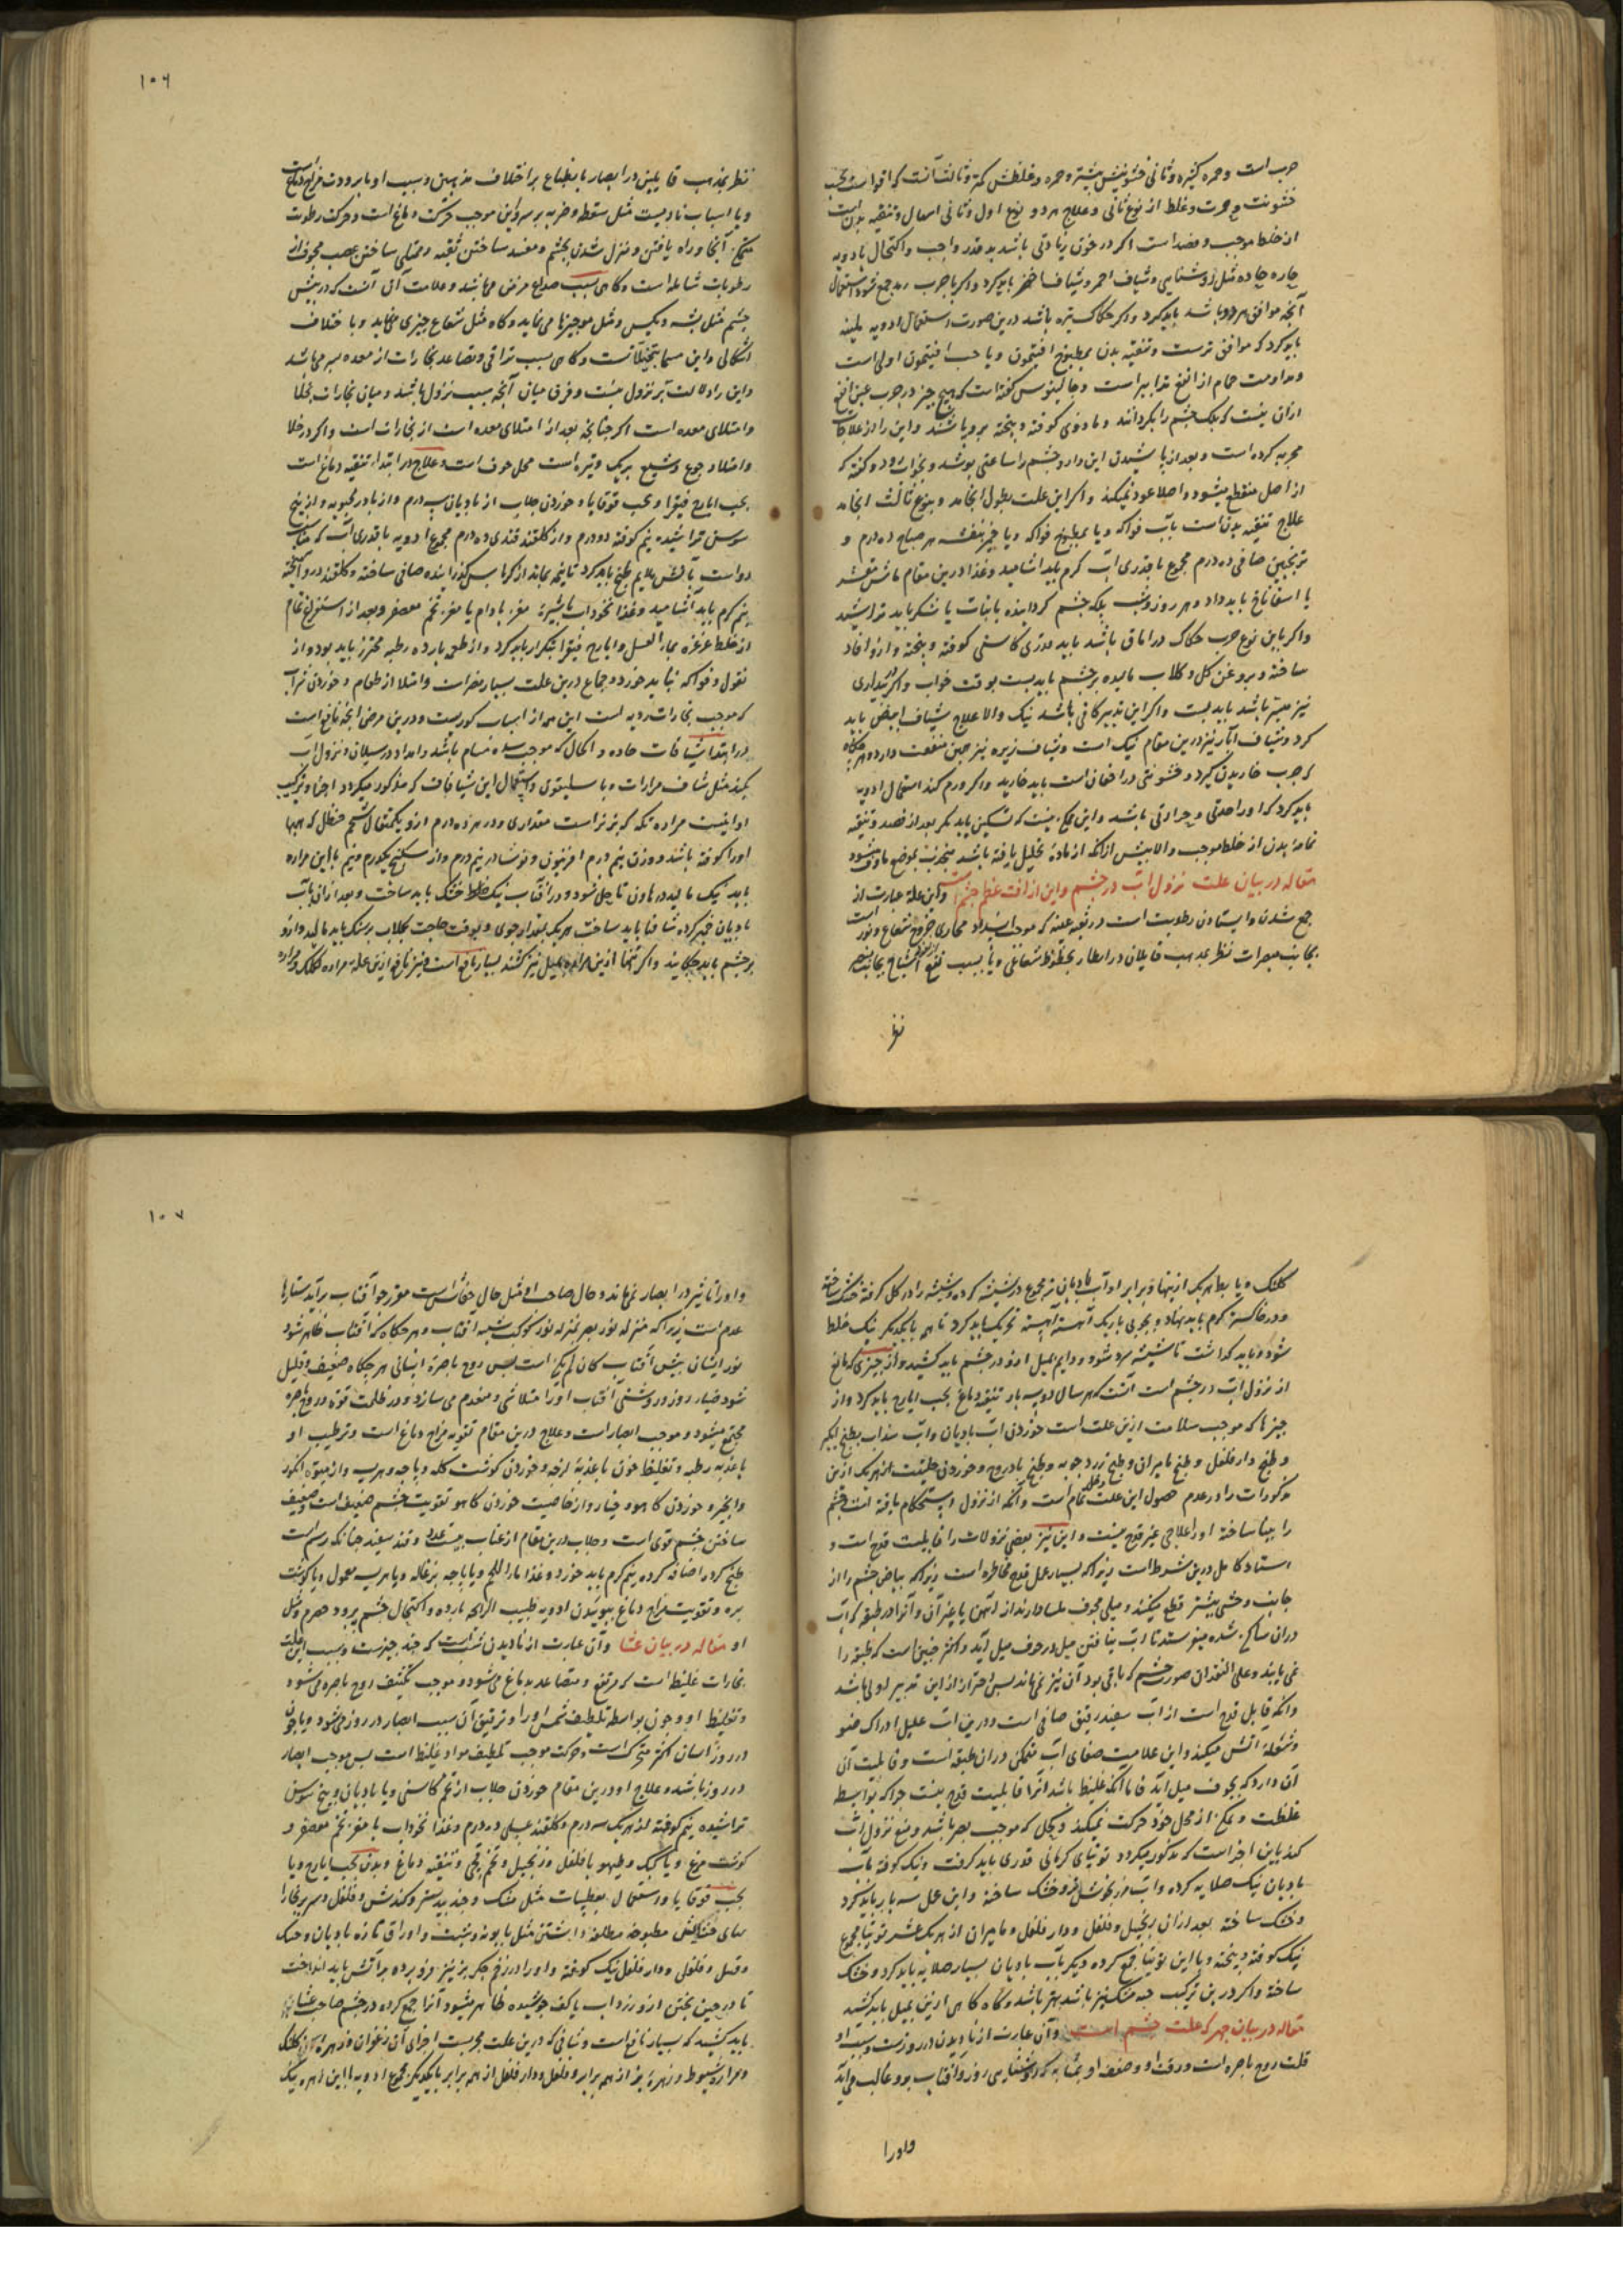 ۱۰۶
جرب است و حمره کثیره و ثانی خشونتش بیشتر و حمره و غلظش کمتر و ثالث آنست که اقوا است بحسب
خشونت و حمرت و غلظ از نوع ثانی و علاج هر دو نوع اول و ثانی اسهال و تنقیه بدن است
از خلط موجب و فصد است اگر در خون زیادتی باشد بقدر واجب و اکتحال بادویه
حاره حاده مثل روشنایی و شیاف احمر و شیاف اخضر باید کرد و اگر با جرب رمد جمع شود استعمال
آنچه موافق هر دو باشد باید کرد و اگر حکاک تیره باشد درین صورت استعمال ادویه ملینه
باید کرد که موافق ترست و تنقیه بدن بمطبوخ افتیمون و یا حب افتیمون اولی است
و مداومت حمام از انفع تدابیر است و جالینوس گفته است که هیچ چیز در جرب عین انفع
ازان نیست که پلک چشم را بگردانند و مازوی کوفته و بیخته برو پاشند و این را از علاجات
مجربه کرده است و بعد از پاشیدن این دارو چشم را ساعتی بپوشد و بخواب رود و گفته که
از اصل منقطع میشود و اصلا عود نمیکند و اگر این علت بطول انجامد و بنوع ثالث انجامد
علاج تنقیه بدن است بآب فواکه و یا بمطبوخ فواکه و یا خمیر بنفشه هر صباح ده درم و
ترنجبین صافی ده درم مجموع با قدری آب گرم باید آشامید و غذا درین مقام ماش مقشر
با اسفاناخ باید داد و هر روز و شب پلک چشم گردانیده بانبات یا شکر باید تراشید
و اگر باین نوع جرب حکاک در اماق باشد باید قدری کاسنی کوفته و بیخته و ازو اقاد
ساخته و بروغن گل و گلاب مالیده بر چشم باید بست بوقت خواب و اگر در بیداری
نیز میسر باشد باید بست و اگر این تدبیر کافی باشد نیک والا علاج بشیاف ابیض باید
کرد و شیاف آبار نیز درین مقام نیک است و شیاف زیره نیز همین منفعت دارد و هر چکاه
که جرب خاریدن گیرد و خشونتی در اجفان است باید خارید و اگر ورم کند استعمال ادویه
باید کرد که او را حدتی و حرارتی باشد و این ممکن نیست که تسکین یابد مگر بعد از فصد و تنقیه
تمامه بدن از خلط موجب والا بیش از آنکه از ماده تحلیل یافته باشد منجذب بموضع ماوف میشود
مقاله در بیان علت نزول آب در چشم و این از آفت عظم چشم است و این علة عبارت از
جمع شدن و ایستادن رطوبت است در ثقبه عینیه که موجب انسداد مجاری خروج شعاع و نور است
بجانب مبصرات نظر بمذهب قایلان در ابصار بخطوط شعاعی و یا بسبب منع از انطباع اشباح بجانب بصر
نظر
نظر بمذهب قایلین در ابصار بانطباع بر اختلاف مذهبین و سبب او یا برودت مزاج دماغ است
و یا اسباب نادیست مثل سقطه و ضربه بر سر و این موجب حرکت دماغ است و حرکت رطوبت
متکمن آنجا و راه یافتن و منزل شدن بچشم و مفسد ساختن ثقبه و ممتلی ساختن عصب مجوف از
رطوبات شامله است و گاهی بسبب صداع مزمن مینماید و علامت آن آنست که در پیش
چشم مثل پشه و مگس و مثل موچیزها می نماید و گاه مثل شعاع چیزی می نماید و با ختلاف
اشکالی و این مسما بتخیلاتست و گاهی بسبب تراقی و تصاعد بخارات از معده بسر میباشد
و این را دلالت بر نزول نیست و فرق میان آنچه سبب نزول باشد و میان بخارات بخلا
و امتلای معده است اگر چنانچه بعد از امتلای معده است از بخارات است و اگر در خلا
و امتلا و جوع و شبع بریک وتیره است محل خوف است و علاج در ابتدا تنقیه دماغ است
بحب ایارج فیقرا و بحب قوقایا و خوردن جلاب از بادیان سه درم و از بادرنجبویه و از بیخ
سوسن تراشیده نیم کوفته دو درم و از گلقند قندی ده درم مجموع ادویه با قدری آب که مناسب
دو است بآتش ملایم طبخ باید کرد تا نیمه بماند از کرباس گذرانیده صافی ساخته و گلقند درو آمیخته
نیم گرم باید آشامید و غذا نخوداب بشیره مغز بادام یا مغز تخم معصفر و بعد از استفراغ تمام
از خلط غرغره بماء العسل و ایارج فیقرا بتکرار باید کرد و از طعمه بارده رطبه محترز باید بود و از
بقول و فواکه نباید خورد و جماع درین علت بسیار مضرات و امتلا از طعام و خوردن شراب
که موجب بخارات ردیه است این همه از اسباب کوریست و درین مرض ابخره نافع است
در ابتدا شیافات حاده و اکحال که موجب سده مسام باشد و امداد در سیلان و نزول آب
نکند مثل شیاف مرارات و باسلیقون و استعمال این شیافات که مذکور میگردد اجزا و ترکیب
او اینست مراره تکه که بز نر است مقداری و در هر ده درم ازو یکمثقال شحم حنظل که بها
او را کوفته باشند و وزن نیم درم افربیون و نوشادر نیم درم و از سکبینج یکدرم و نیم با این مراره
باید نیک مالید در هاون تا حل شود و در آفتاب نیک خشک باید ساخت و بعد ازان بآب
بادیان خمیر کرده شافها باید ساخت هر یک بمقدار جوی و بوقت حاجت بگلاب بر سنگ باید مالید و ازو
بر چشم باید چکانید و اگر تنها ازین مراره بمیل نیز کشند بسیار نافع است و نیز نافع ازین علة مراره کلنگ و مراره
۱۰۷
کلنگ و یا بط هر یک ازینها و برابر او آب بادیان تر مجموع در شیشه کرده و شیشه را در گل گرفته خشک ساخته
و در خاکستر گرم باید نهاد و بچوبی باریک آهسته آهسته تحریک باید کرد تا بهم با یکدیگر نیک خلط
شود و باید گذاشت تا شیشه سرد شود و دایم بمیل ازو در چشم باید کشید و از چیزی که مانع
از نزول آب در چشم است آنست که هر سال دو سه بار تنقیه دماغ بحب ایارج باید کرد و از
چیزها که موجب سلامت ازین علت است خوردن آب بادیان و آب سداب و طبخ انجیر
و طبخ دارفلفل و طبخ مامیران و طبخ زرد چوبه و طبخ بادروج و خوردن حلتیت از هر یک ازین
مذکورات را در عدم حصول این علت دخل تمام است و آنکه از نزول و استحکام یافته است چشم
را بینا ساخته او را علاجی غیر قدح نیست و این نیز بعضی نزولات را قابلیت قدح است و
استاد کامل درین شرط است زیرا که بسیار عمل قدح مخاطره است زیرا که بیاض چشم را از
جانب وحشی بیشتر قطع میکنند و میلی مجوف ملسا دارند از آهن یا غیر آن و آنرا در طبقه که آب
دران ساکن شده میفرستند تا آب بیافتن میل در جوف میل آید و اکثر چنین است که طبقه را
نمی یابند و علی النقدان صورت چشم که باقی بود آن نیز نمی ماند پس احتراز از این تدبیر اولی باشد
و آنکه قابل قدح است از آب سفید رقیق صافی است و درین آب علیل ادراک ضو
و شعله آتش میکند و این علامت صفای آب متمکن دران طبقه است و قابلیت آن
آن دارد که بجوف میل آید فاما آنکه غلیظ باشد آنرا قابلیت قدح نیست چرا که بواسطه
غلظت ممکن از محل خود حرکت نمیکند و کحل که موجب بصر باشد و منع نزول آب
کند باین اجزاست که مذکور میگردد توتیای کرمانی قدری باید گرفت و نیک کوفته بآب
بادیان نیک صلایه کرده و آب مرزنجوش تر و خشک ساخته و این عمل سه بار باید کرد
و خشک ساخته بعد ازان زنجبیل و فلفل و دارفلفل و مامیران از هر یک عشر توتیا مجموع
نیک کوفته و بیخته و با این توتیا جمع کرده دیگر بآب بادیان بسیار صلایه باید کرد و خشک
ساخته و اگر درین ترکیب حبه مشک نیز باشد بهتر باشد و گاه گاهی ازین بمیل باید کشید
مقاله در بیان جهر که علت چشم است و آن عبارت از نادیدن در روزست و سبب او
قلت روح باصره است و رقت او و ضعف او بمثابه که از روشنایی روز و آفتاب بر و غالب می آید
و او را
و او را تاثیر در ابصار نمی ماند و حال صاحب او مثل حال خفاش است مقرر چو آفتاب برآید ستارها
عدم است زیرا که منزله نور بصر بمنزله نور کوکب شبیه آفتاب و هر چگاه که آفتاب ظاهر شود
نور ایشان پیش آفتاب کان لم یکن است پس روح باصره انسانی هر چگاه ضعیف و قلیل
شود ضیاء روز و روشنی آفتاب او را متلاشی و منعدم می سازد و در ظلمت قوه در روح باصره
مجتمع میشود و موجب ابصار است و علاج درین مقام تقویه مزاج دماغ است و ترطیب او
باغذیه رطبه و تغلیظ خون باغذیه لزجه و خوردن گوشت کله و پاچه و هریسه و از میوه انگور
و انجیر و خوردن کاهو و خیار و از خاصیت خوردن کاهو تقویت چشم ضعیف است و ضعیف
ساختن چشم قوی است و جلاب درین مقام از عناب بیست عدد و قند سفید چنانکه رسم است
طبخ کرده اضافه کرده نیم گرم باید خورد و غذا ماء اللحم و یا پاچه بزغاله و یا هریسه معمول و یا گوشت
بره و تقویت مزاج دماغ ببوییدن ادویه طیب الرایحه بارده و اکتحال چشم ببرود حصرم و مثل
او مقاله در بیان عشا و آن عبارت از نادیدن شب است که چند چیزست و سبب این علت
بخارات غلیظ است که مرتفع و متصاعد بدماغ می شود و موجب تکثیف روح باصره می شود
و تغلیظ او و چون بواسطه تلطیف شمس او را و ترقیق آن سبب ابصار در روز می شود و یا چون
در روز انسان اکثر متحرک است و حرکت موجب تلطیف مواد غلیظ است پس موجب ابصار
در روز باشد و علاج او درین مقام خوردن جلاب از تخم کاسنی و یا بادیان و بیخ سوسن
تراشیده نیم کوفته از هر یک سه درم و گلقند عسلی ده درم و غذا نخوداب با مغز تخم معصفر و
گوشت مرغ و یا کبک و طیهو با فلفل و زنجبیل و تخم و تنقیه دماغ و بدن بحب ایارج و یا
بحب قوقایا و استعمال بعطیسات مثل مشک و جندبیدستر و کندش و فلفل و سر بر بخارا
بهای خشایش مطبوخه ملطفه داشتن مثل بابونه و شبت و اوراق تازه بادیان و حسک
و فلفل و دارفلفل نیک کوفته و او را در زخم جگر بز نیز فرو برده بر آتش باید انداخت
تا در حین پختن ازو زرداب با کف جوشیده ظاهر میشود آنرا جمع کرده در چشم صاحب عشا
باید کشید که بسیار نافع است و شیافی که درین علت مجربست اجزای آن زعفران و زهره کلنگ
و مراره شبوط و زهره بز از هم برابر و فلفل و دارفلفل از هم برابر با یکدیگر مجموع ادویه با این زهره نیک